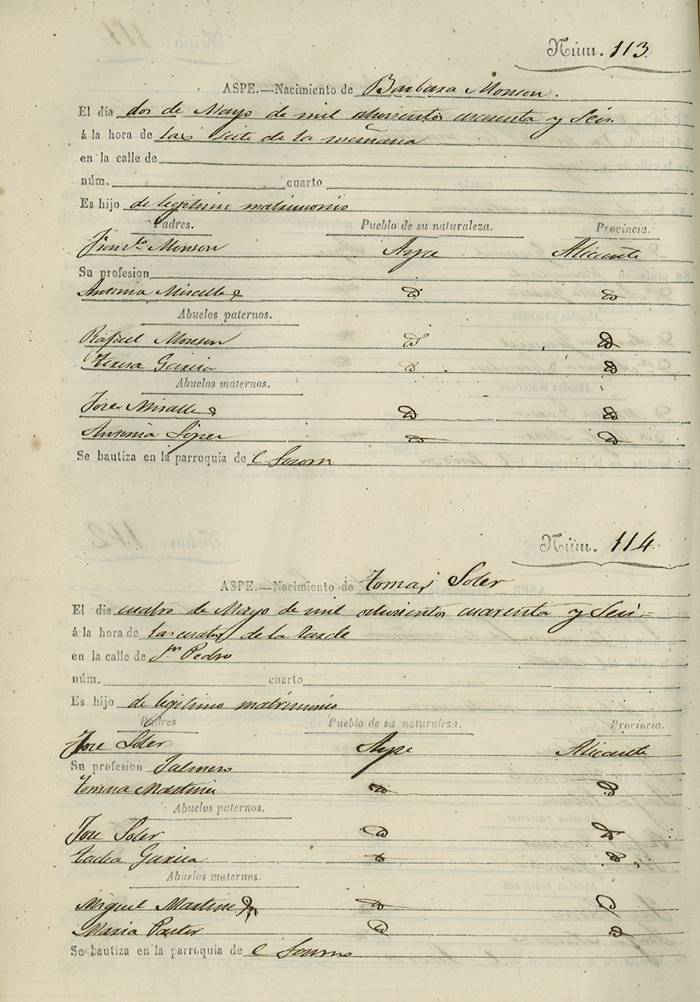 Núm. 113
ASPE.—Nacimiento de Barbara Monson
El dia dos de Mayo de mil ochocientos cuarenta y Seis
á la hora de las Siete de la mañana
en la calle de
núm. cuarto
Es hijo de legitimo matrimonio
Padres. Pueblo de su naturaleza. Provincia.
Franco Monson Aspe Alicante
Su profesion
Antonia Miralle
Abuelos paternos.
Rafael Monson
Teresa Garcia
Abuelos maternos.
Jose Miralle
Antonia Lopez
Se bautiza en la parroquia de
Núm. 114
ASPE.—Nacimiento de Tomas Soler
El dia cuatro de Mayo de mil ochocientos cuarenta y Seis
á la hora de las cuatro de la tarde
en la calle de Sn Pedro
núm. cuarto
Es hijo de legitimo matrimonio
Padres Pueblo de su naturaleza. Provincia.
Jose Soler Aspe Alicante
Su profesion
Martinez
Abuelos paternos.
Jose Soler
Garcia
Abuelos maternos.
Miguel Martinez
Maria Pastor
Se bautiza en la parroquia de